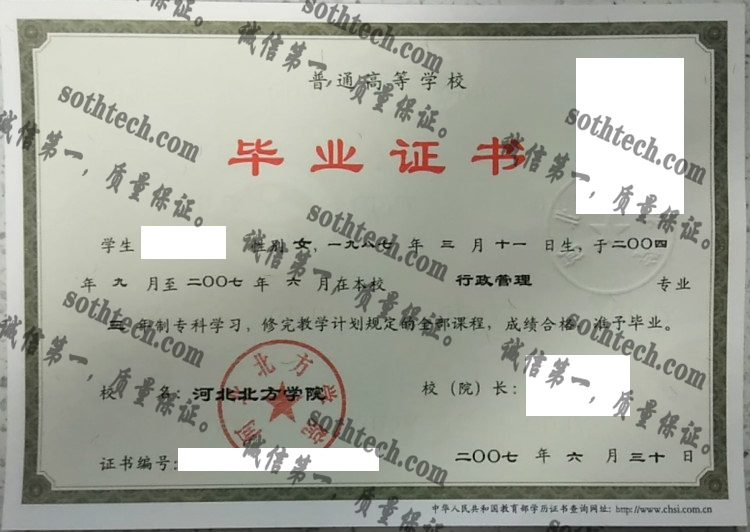 普通高等学校
毕业证书
学生 性别 女，一九八七年 三 月 十一 日生，于二〇〇四
年 九 月至 二〇〇七 年 六 月在本校 行政管理 专业
三 年制专科学习，修完教学计划规定的全部课程，成绩合格，准予毕业。
校 名：河北北方学院 校（院）长：
证书编号： 二〇〇七 年 六 月 三十 日
中华人民共和国教育部学历证书查询网址：http://www.chsi.com.cn
河北北方学院
sothtech.com
诚信第一，质量保证。
sothtech.com
诚信第一，质量保证。
sothtech.com
诚信第一，质量保证。
sothtech.com
诚信第一，质量保证。
sothtech.com
诚信第一，质量保证。
sothtech.com
诚信第一，质量保证。
sothtech.com
诚信第一，质量保证。